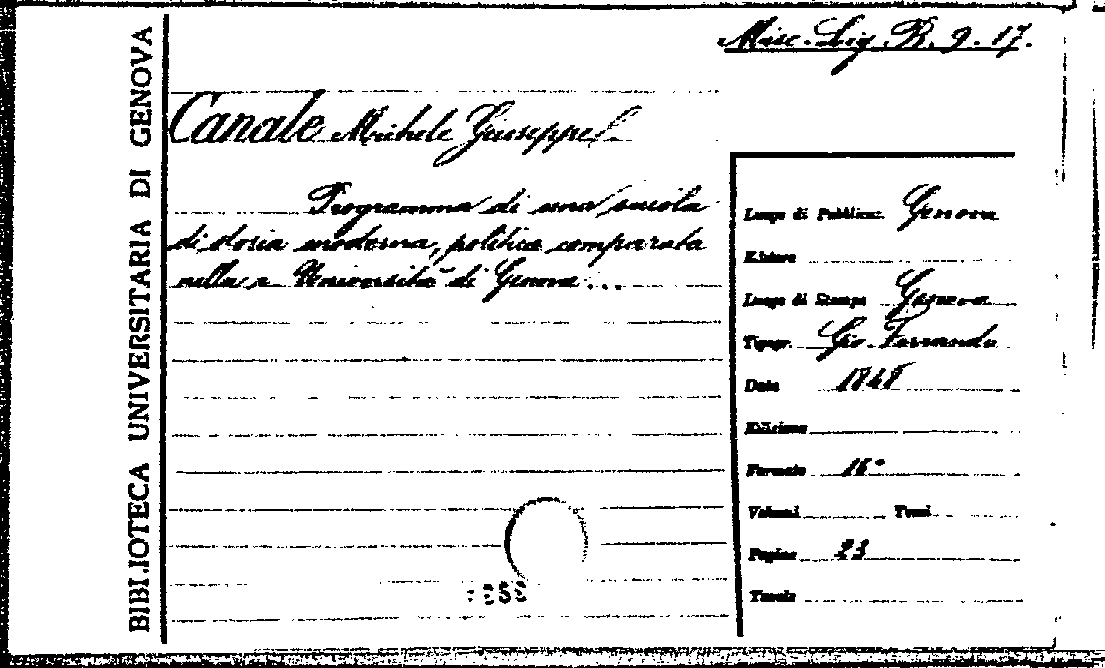 Misc. Lig. B. 9. 17.
BIBLIOTECA UNIVERSITARIA DI GENOVA
Canale Michele Giuseppe
Programma di una scuola
di storia moderna, politica comparata
nella R. Università di Genova...
Luogo di Pubblicaz. Genova
Editore
Luogo di Stampa Genova
Tipogr. Gio. Ferrando
Data 1848
Edizione
Formato 16°
Volumi Tomi
Pagine 23
Tavole